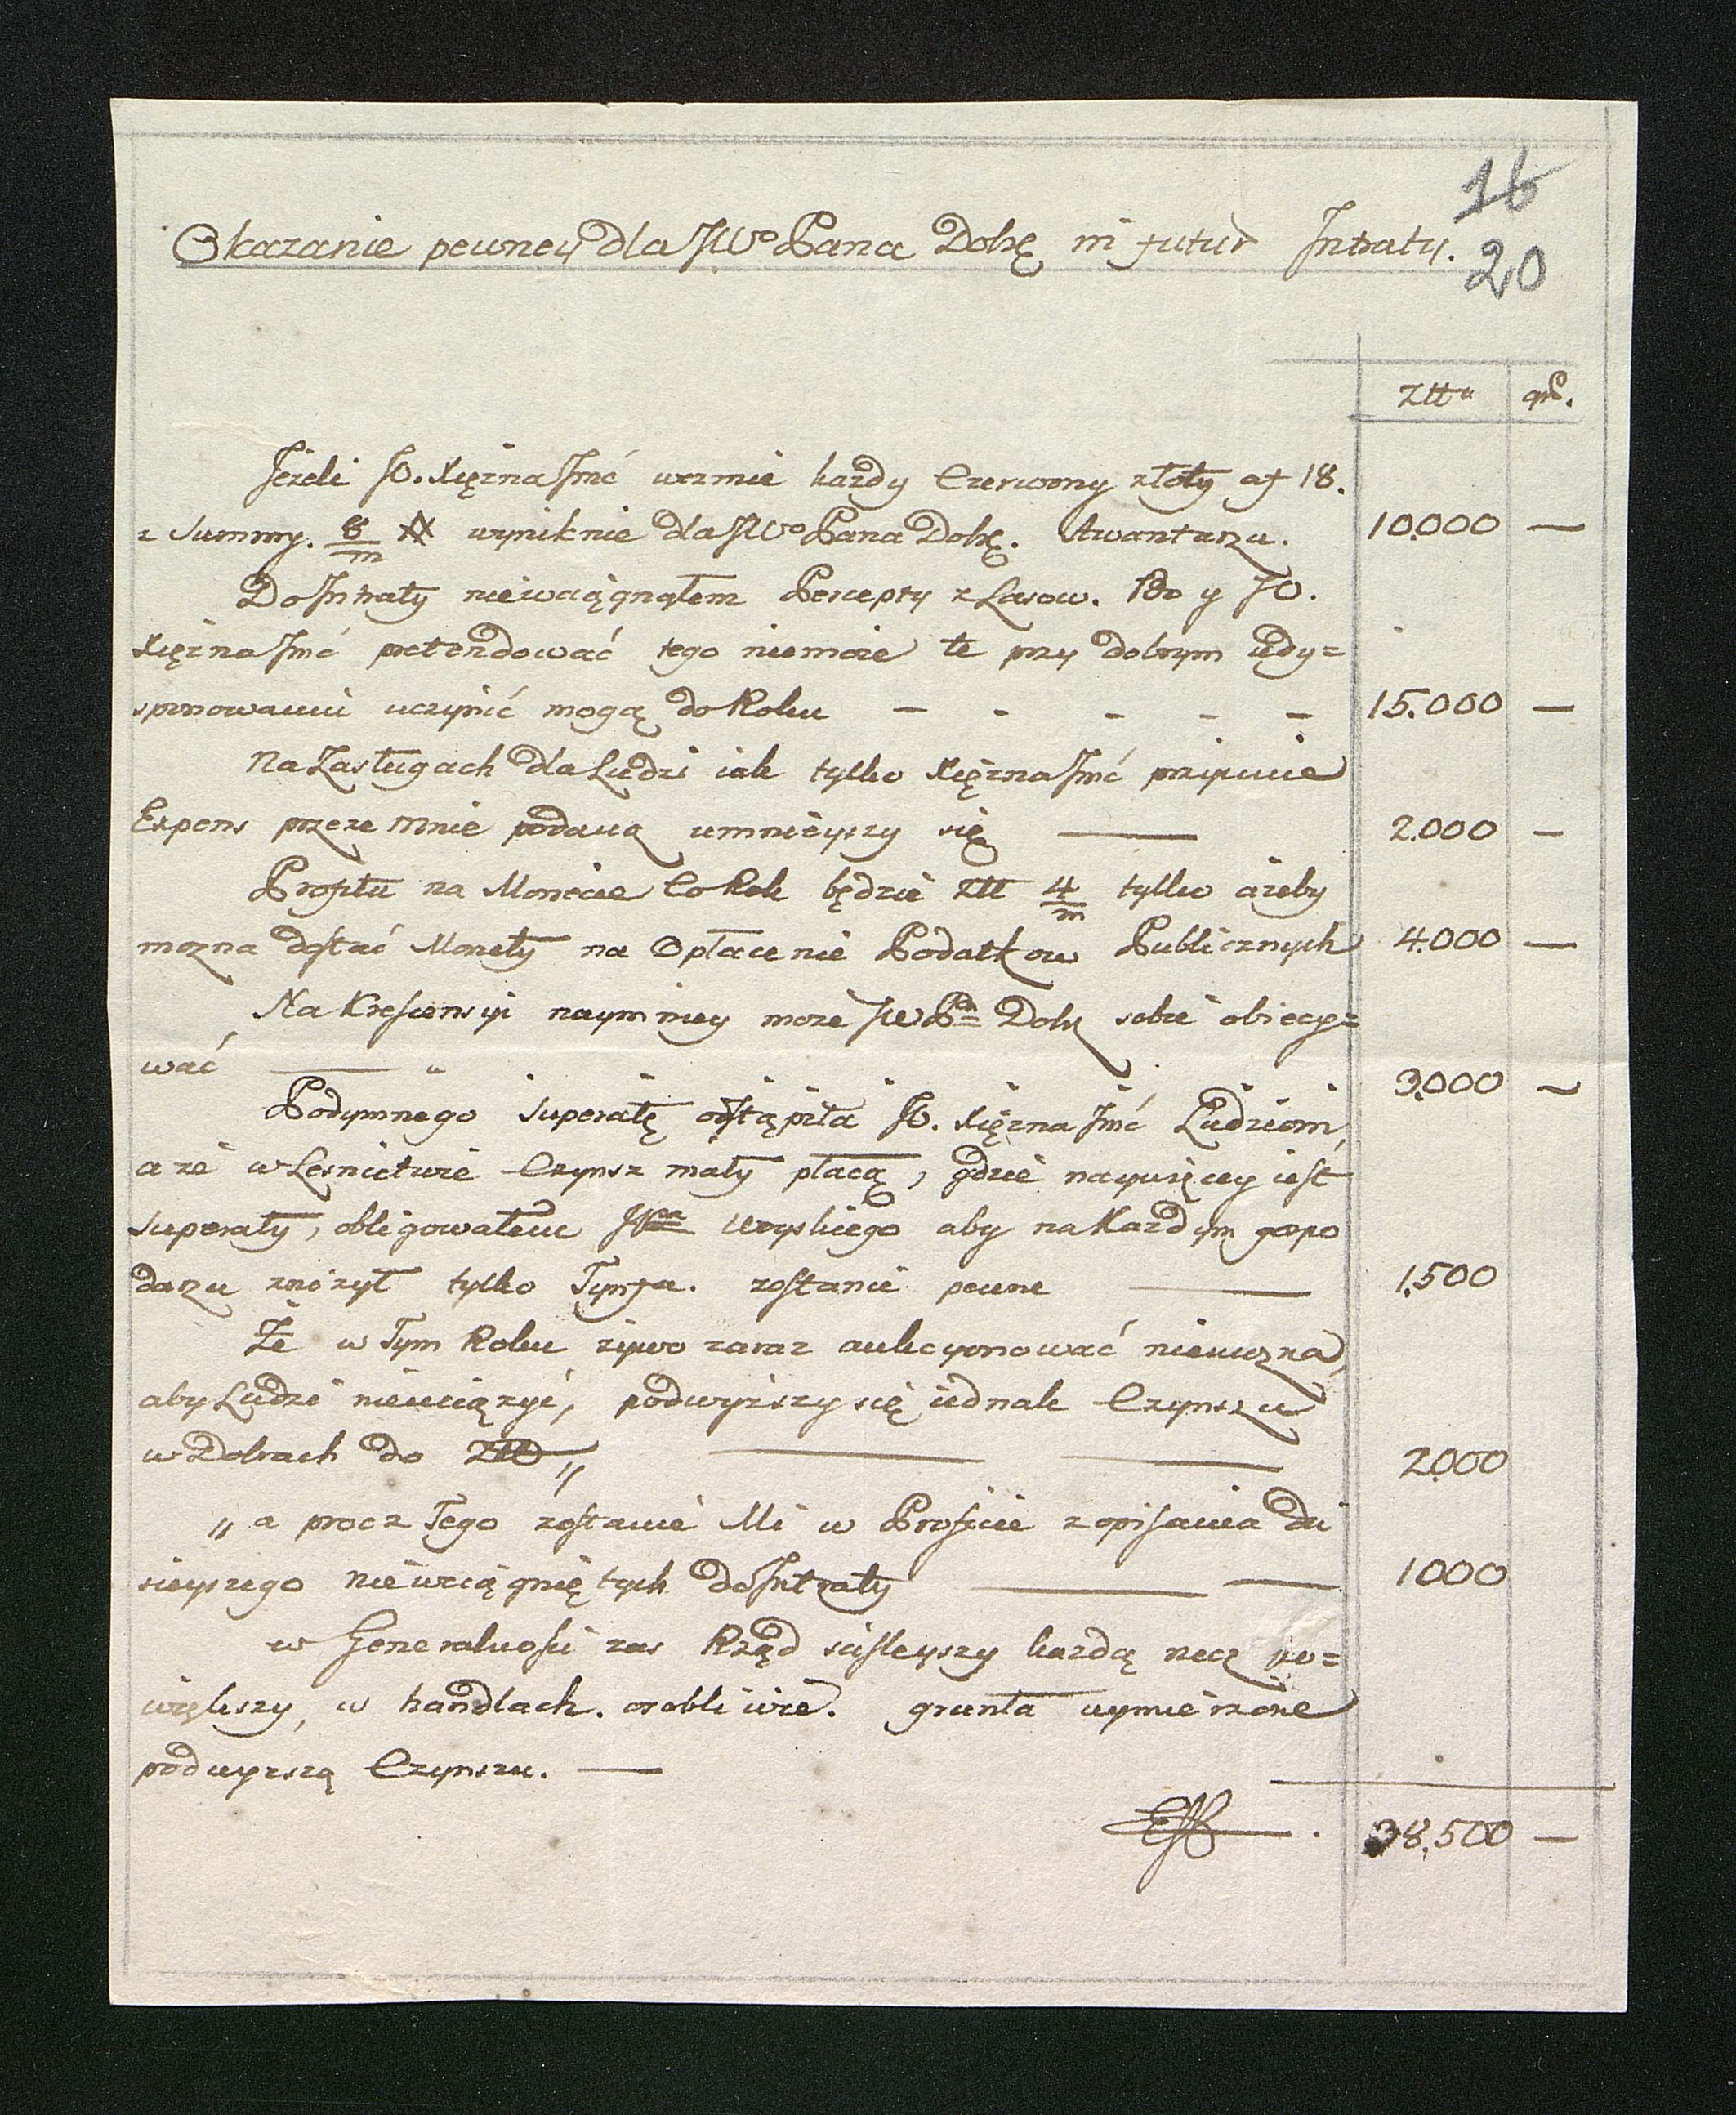 16
20
Okazanie pewney dla JWo Pana Dobrę in futur Intraty.
Złtt gr.
Jeżeli JO. Xiężna Jmć wezmie każdy Czerwony złoty af 18.
z Summy. 8/m # wyniknie dla JWo Pana Dobrę. Awantazu. 10.000 —
Do Intraty niewciągnąłem Percepty z Lasow. Bo y JO.
Xiężna Jmć pretendować tego niemoże te przy dobrym udy=
sponowaniu uczynić mogą do Roku - - - - - 15.000 —
Na Zasługach dla Ludzi iak tylko Xiężna Jmć przyimie
Expens przeze Mnie podaną umnieyszy się — 2.000 —
Profitu na Monecie Co Rok będzie Złł 4/m tylko ażeby
mozna dostać Monety na Opłacenie Podatkow Publicznych 4.000 —
Na Krescensyi naymniey może JW Pn Dobr sobie obiecy=
wać — " 3.000 —
Podymnego Superatę odstąpiła JO. Xiężna Jmć Ludziom,
a że w Lesnictwie Czynsz mały płacą, gdzie naywięcey iest
Superaty, obligowałem JPna aby na Każdym gospo
darzu złożył tylko Tynfa. zostanie pewne — 1.500
Że w Tym Roku żywo zaraz aukcyonować niemozna,
aby Ludzi nieuciążyć, podwyższy się iednak Czynszu
w Dobrach do Złł " — — 2000
" a procz Tego zostanie Mi w Proficie z opisania dzi
sieyszego niewciągniętych do Intraty — — 1000
w Generalnosci zas Rząd scisleyszy każdą rzecz po=
większy, w handlach. osobliwie. grunta wymierzone
podwyzszą Czynszu. —
38,500 —